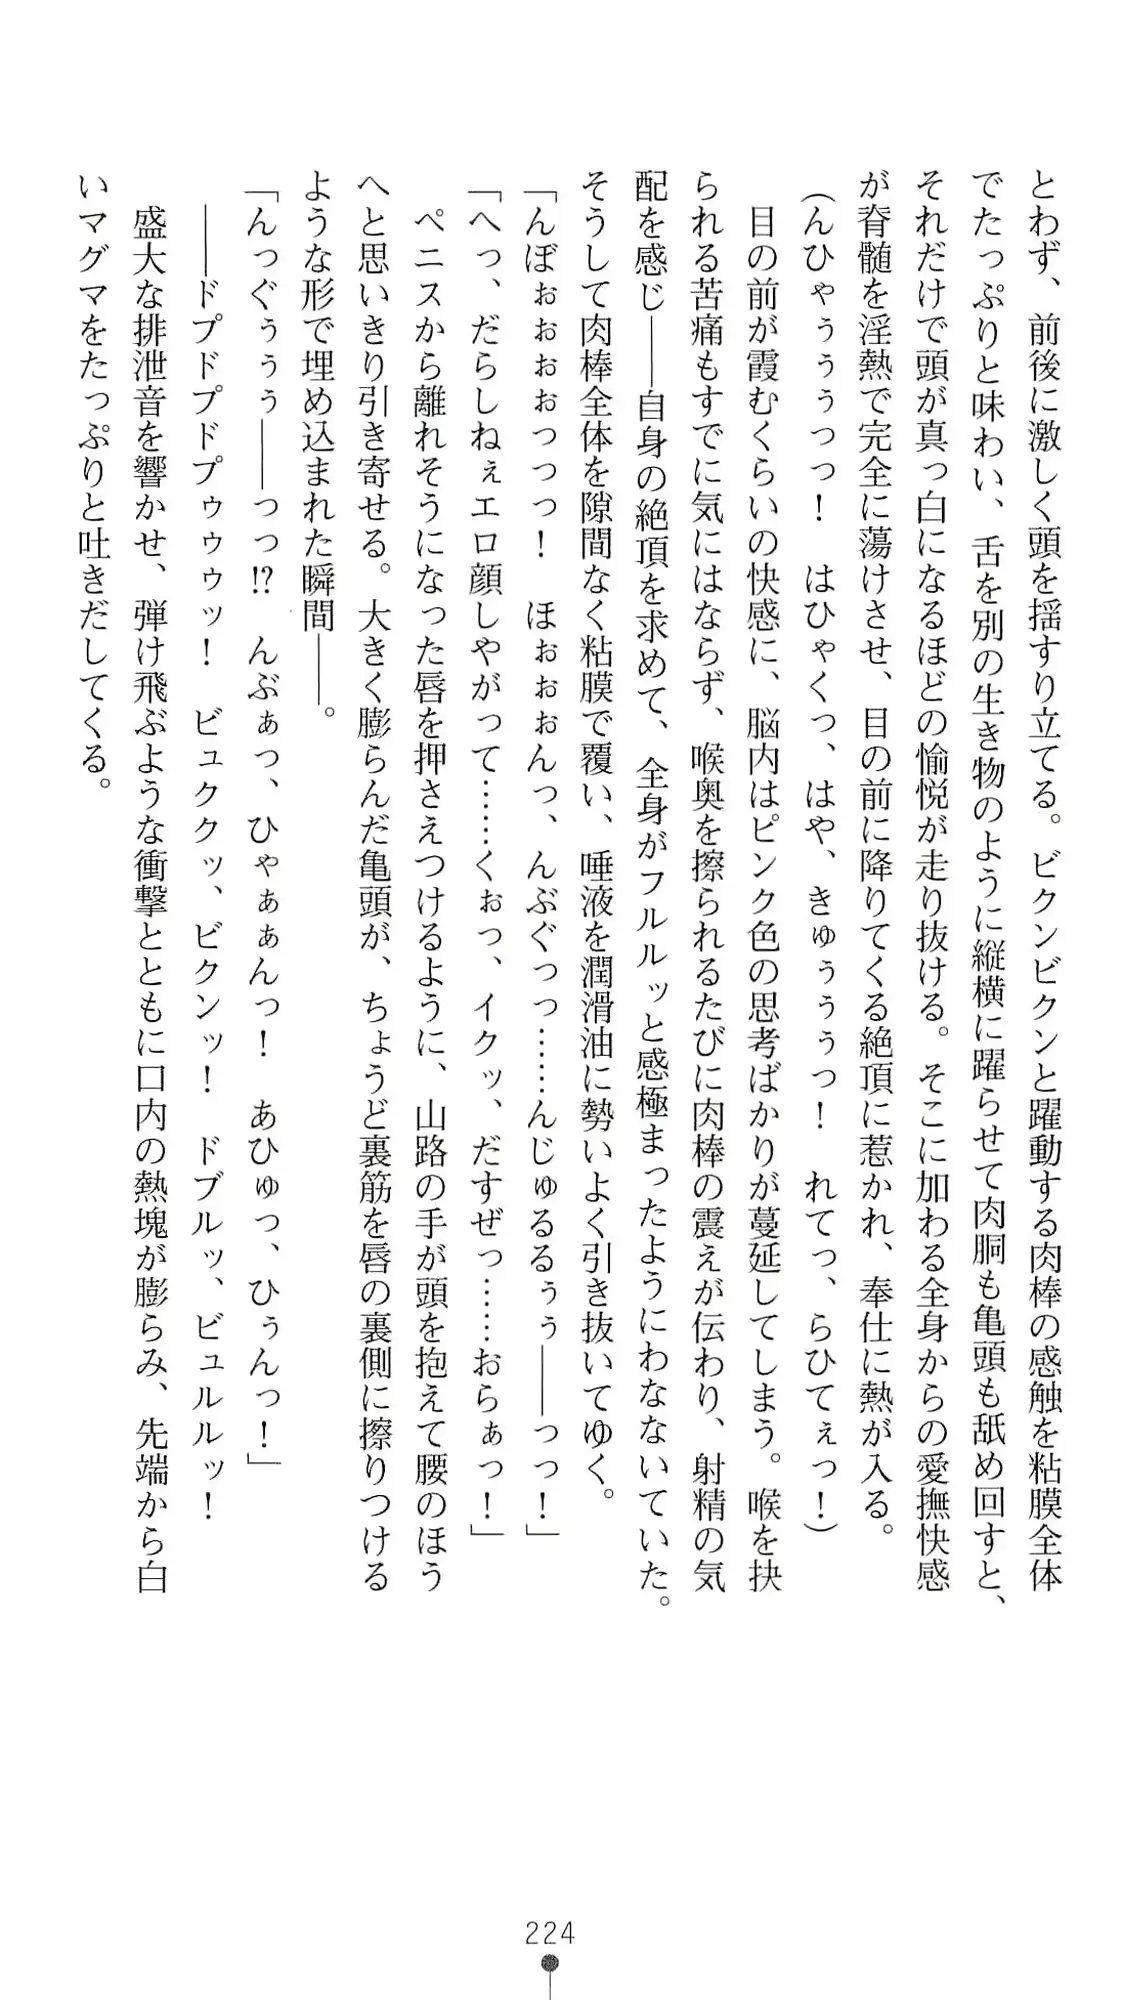 とわず、前後に激しく頭を揺すり立てる。ビクンビクンと躍動する肉棒の感触を粘膜全体
でたっぷりと味わい、舌を別の生き物のように縦横に躍らせて肉胴も亀頭も舐め回すと、
それだけで頭が真っ白になるほどの愉悦が走り抜ける。そこに加わる全身からの愛撫快感
が脊髄を淫熱で完全に蕩けさせ、目の前に降りてくる絶頂に惹かれ、奉仕に熱が入る。
（んひゃぅぅぅっっ！　はひゃくっ、はや、きゅぅぅぅっ！　れてっ、らひてぇっ！）
　目の前が霞むくらいの快感に、脳内はピンク色の思考ばかりが蔓延してしまう。喉を抉
られる苦痛もすでに気にはならず、喉奥を擦られるたびに肉棒の震えが伝わり、射精の気
配を感じ――自身の絶頂を求めて、全身がフルルッと感極まったようにわなないていた。
そうして肉棒全体を隙間なく粘膜で覆い、唾液を潤滑油に勢いよく引き抜いてゆく。
「んぼぉぉぉぉっっっ！　ほぉぉぉんっ、んぶぐっっ……んじゅるるぅぅ――っっ！」
「へっ、だらしねぇエロ顔しやがって……くぉっ、イクッ、だすぜっ……おらぁっ！」
　ペニスから離れそうになった唇を押さえつけるように、山路の手が頭を抱えて腰のほう
へと思いきり引き寄せる。大きく膨らんだ亀頭が、ちょうど裏筋を唇の裏側に擦りつける
ような形で埋め込まれた瞬間――。
「んっぐぅぅぅ――っっ!?　んぶぁっ、ひゃぁぁんっ！　あひゅっ、ひぅんっ！」
　――ドプドプドプゥゥゥッ！　ビュククッ、ビクンッ！　ドブルッ、ビュルルッ！
　盛大な排泄音を響かせ、弾け飛ぶような衝撃とともに口内の熱塊が膨らみ、先端から白
いマグマをたっぷりと吐きだしてくる。
224